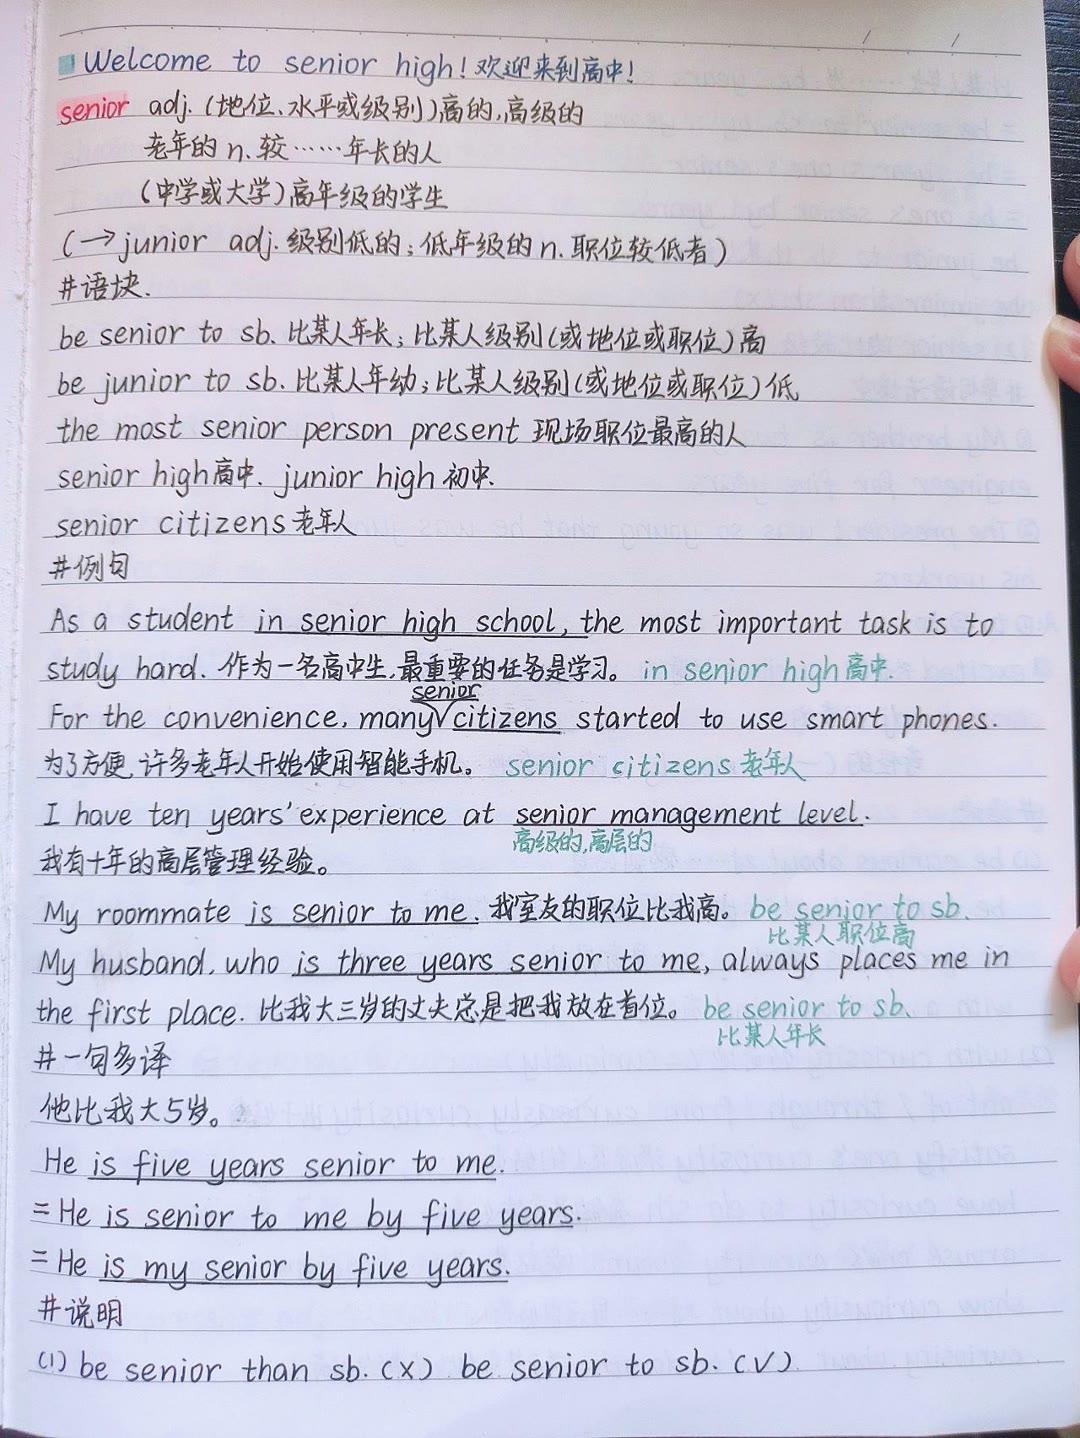 Welcome to senior high! 欢迎来到高中!
senior adj. (地位、水平或级别)高的,高级的
老年的 n. 较……年长的人
(中学或大学)高年级的学生
(→junior adj. 级别低的;低年级的 n. 职位较低者)
#语块.
be senior to sb. 比某人年长;比某人级别(或地位或职位)高
be junior to sb. 比某人年幼;比某人级别(或地位或职位)低
the most senior person present 现场职位最高的人
senior high 高中. junior high 初中.
senior citizens 老年人
#例句
As a student in senior high school, the most important task is to
study hard. 作为一名高中生,最重要的任务是学习。 in senior high 高中.
senior
For the convenience, many√citizens started to use smart phones.
为了方便,许多老年人开始使用智能手机。 senior citizens 老年人
I have ten years' experience at senior management level.
高级的,高层的
我有十年的高层管理经验。
My roommate is senior to me. 我室友的职位比我高。 be senior to sb.
比某人职位高
My husband, who is three years senior to me, always places me in
the first place. 比我大三岁的丈夫总是把我放在首位。 be senior to sb.
比某人年长
#一句多译
他比我大5岁。
He is five years senior to me.
=He is senior to me by five years.
=He is my senior by five years.
#说明
(1) be senior than sb. (×) be senior to sb. (√)